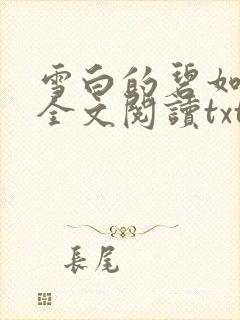 雪白的碧如
全文閱讀txt
長尾